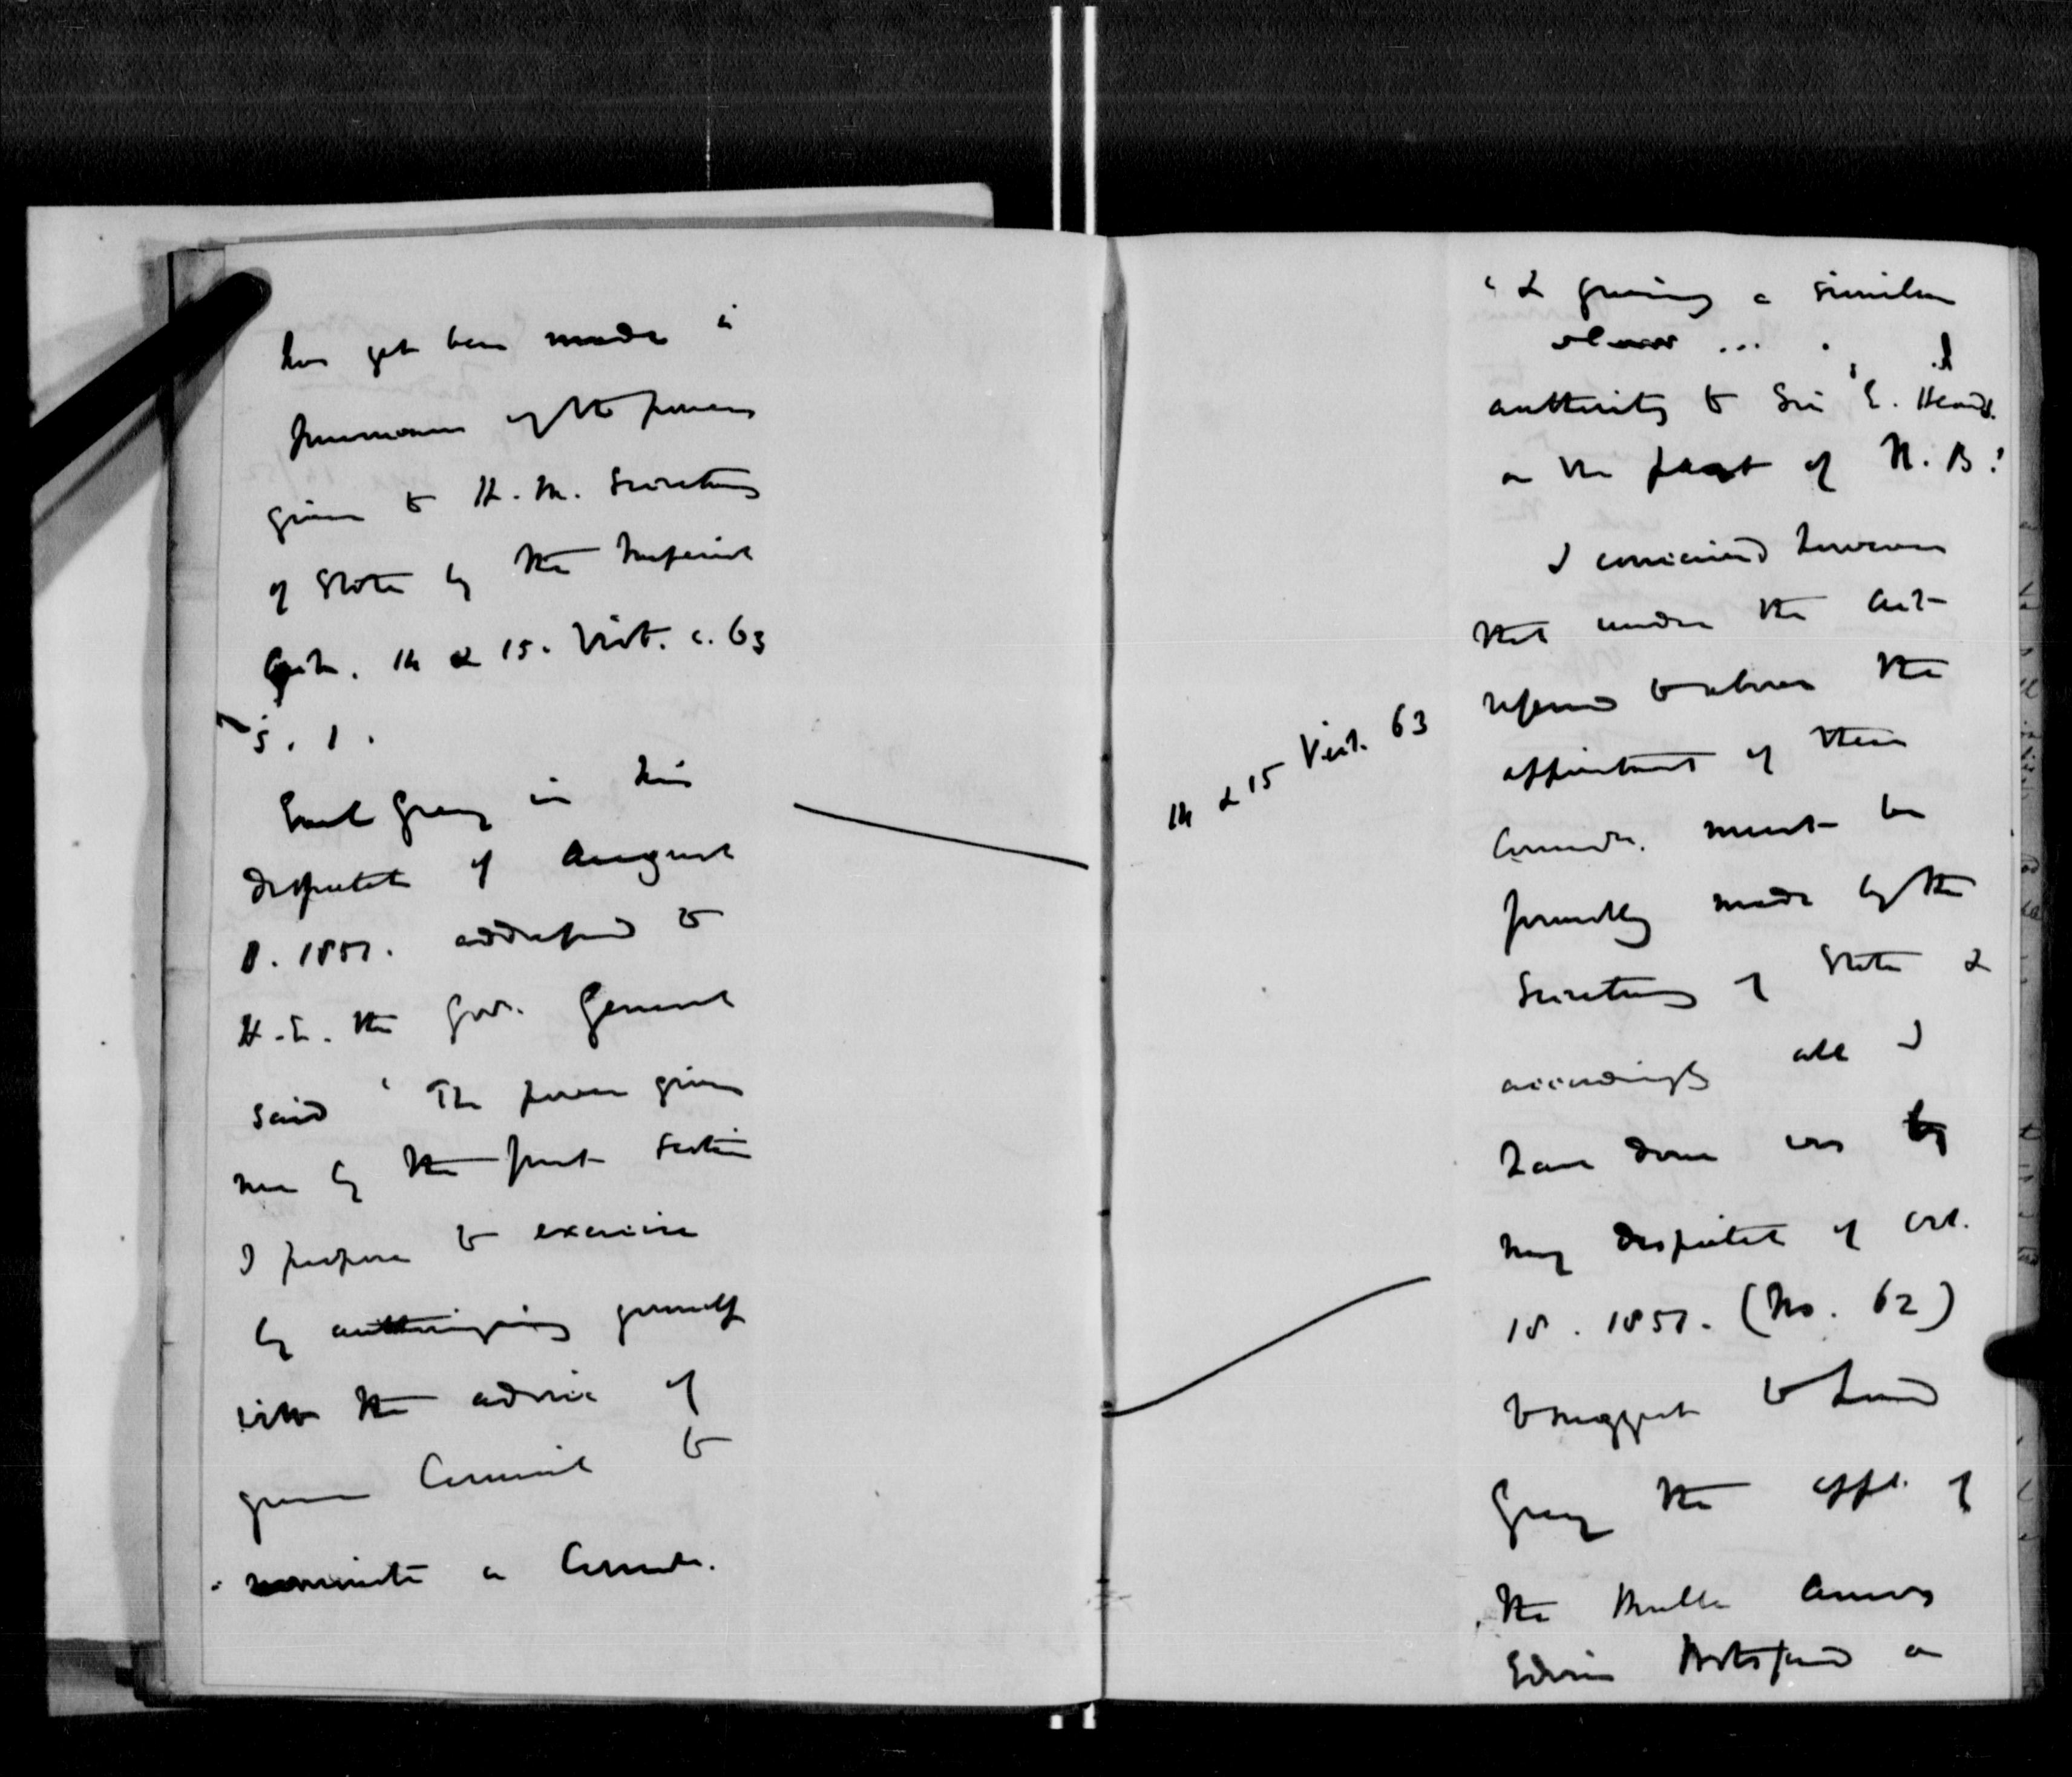 has yet been made in
pursuance of the powers
given to H. M. Secretary
of State by the Imperial
Act. 14 & 15. Vict. c. 63
S. 1.
Earl Grey in his
despatch of August
8. 1851. addressed to
H. E. the Gov. General
said ' The power given
me by the first section
I propose to exercise
by authorizing yourself
with the advice of
your Council to
nominate a Commr.
14 & 15 Vict. 63
' & giving a similar
...
authority to Sir E. Head
on the part of N. B.'
I conceived however
that under the Act
referred to above the
appointment of these
Commrs. must be
formally made by the
Secretary of State &
accordingly all I
have done was by
my despatch of Oct.
18. 1851. (No. 62)
to suggest to Lord
Grey the appt. of
the Amos
Edwin Botsford as